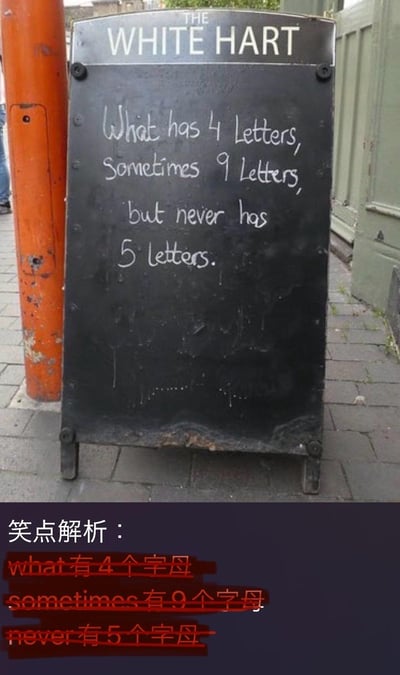 THE
WHITE HART
What has 4 Letters,
Sometimes 9 Letters,
but never has
5 letters.
笑点解析：
what有4个字母
sometimes有9个字母
never有5个字母